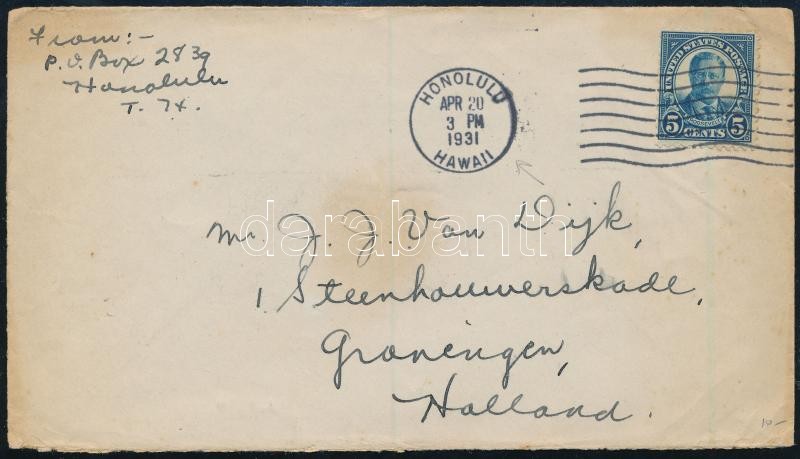 From:-
P.O. Box 2839
Honolulu
T. H.
HONOLULU
APR 20
3 PM
1931
HAWAII
UNITED STATES POSTAGE
ROOSEVELT
5 CENTS 5
Mr. J. J. Van Dijk,
1 Steenhouwerskade,
Groningen,
Holland.
darabanth
10-